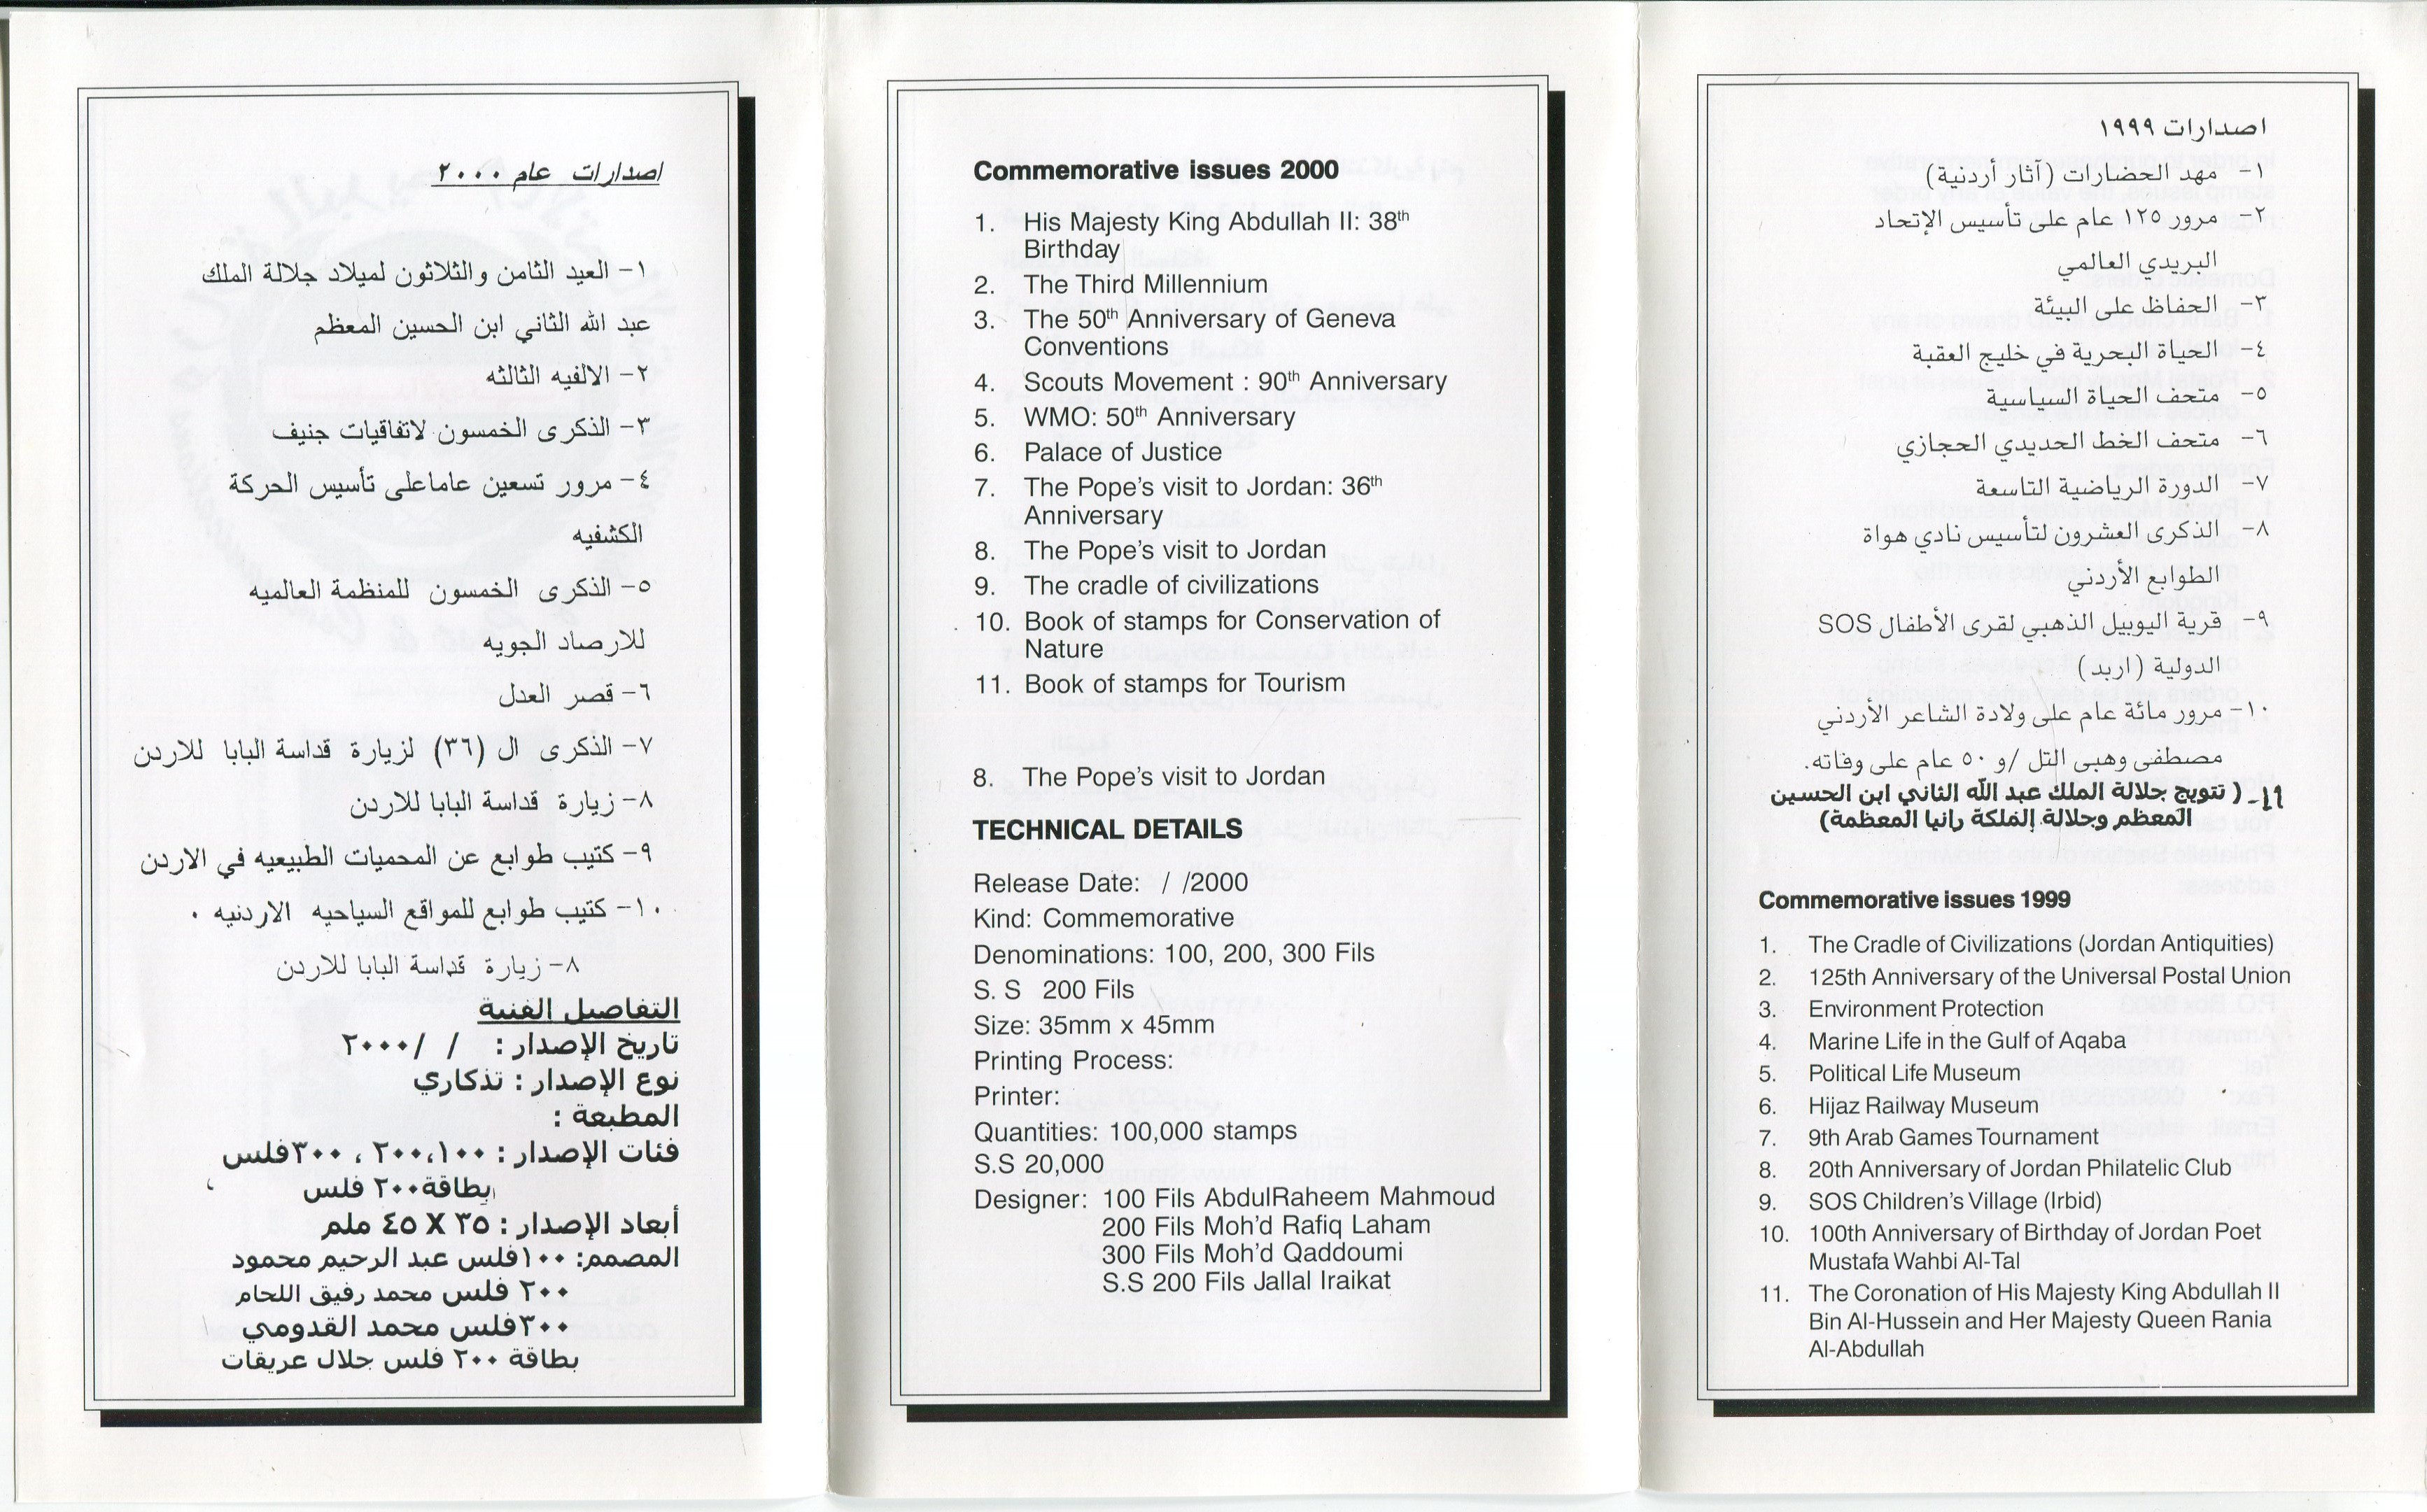 اصدارات عام ٢٠٠٠
١- العيد الثامن والثلاثون لميلاد جلالة الملك
عبد الله الثاني ابن الحسين المعظم
٢- الالفيه الثالثه
٣- الذكرى الخمسون لاتفاقيات جنيف
٤- مرور تسعين عاماعلى تأسيس الحركة
الكشفيه
٥- الذكرى الخمسون للمنظمة العالميه
للارصاد الجويه
٦- قصر العدل
٧- الذكرى ال (٣٦) لزيارة قداسة البابا للاردن
٨- زيارة قداسة البابا للاردن
٩- كتيب طوابع عن المحميات الطبيعيه في الاردن
١٠- كتيب طوابع للمواقع السياحيه الاردنيه ٠
٨- زيارة قداسة البابا للاردن
التفاصيل الفنية
تاريخ الإصدار : / /٢٠٠٠
نوع الإصدار : تذكاري
المطبعة :
فئات الإصدار : ٢٠٠،١٠٠ ، ٣٠٠فلس
بطاقة٢٠٠ فلس
أبعاد الإصدار : ٣٥ X ٤٥ ملم
المصمم: ١٠٠فلس عبد الرحيم محمود
٢٠٠ فلس محمد رفيق اللحام
٣٠٠فلس محمد القدومي
بطاقة ٢٠٠ فلس جلال عريقات
Commemorative issues 2000
1. His Majesty King Abdullah II: 38th
Birthday
2. The Third Millennium
3. The 50th Anniversary of Geneva
Conventions
4. Scouts Movement : 90th Anniversary
5. WMO: 50th Anniversary
6. Palace of Justice
7. The Pope's visit to Jordan: 36th
Anniversary
8. The Pope's visit to Jordan
9. The cradle of civilizations
10. Book of stamps for Conservation of
Nature
11. Book of stamps for Tourism
8. The Pope's visit to Jordan
TECHNICAL DETAILS
Release Date: / /2000
Kind: Commemorative
Denominations: 100, 200, 300 Fils
S. S 200 Fils
Size: 35mm x 45mm
Printing Process:
Printer:
Quantities: 100,000 stamps
S.S 20,000
Designer: 100 Fils AbdulRaheem Mahmoud
200 Fils Moh'd Rafiq Laham
300 Fils Moh'd Qaddoumi
S.S 200 Fils Jallal Iraikat
اصدارات ١٩٩٩
١- مهد الحضارات (آثار أردنية)
٢- مرور ١٢٥ عام على تأسيس الإتحاد
البريدي العالمي
٣- الحفاظ على البيئة
٤- الحياة البحرية في خليج العقبة
٥- متحف الحياة السياسية
٦- متحف الخط الحديدي الحجازي
٧- الدورة الرياضية التاسعة
٨- الذكرى العشرون لتأسيس نادي هواة
الطوابع الأردني
٩- قرية اليوبيل الذهبي لقرى الأطفال SOS
الدولية (اربد)
١٠- مرور مائة عام على ولادة الشاعر الأردني
مصطفى وهبى التل /و ٥٠ عام على وفاته.
١١- ( تتويج جلالة الملك عبد الله الثاني ابن الحسين
المعظم وجلالة الملكة رانيا المعظمة)
Commemorative issues 1999
1. The Cradle of Civilizations (Jordan Antiquities)
2. 125th Anniversary of the Universal Postal Union
3. Environment Protection
4. Marine Life in the Gulf of Aqaba
5. Political Life Museum
6. Hijaz Railway Museum
7. 9th Arab Games Tournament
8. 20th Anniversary of Jordan Philatelic Club
9. SOS Children's Village (Irbid)
10. 100th Anniversary of Birthday of Jordan Poet
Mustafa Wahbi Al-Tal
11. The Coronation of His Majesty King Abdullah II
Bin Al-Hussein and Her Majesty Queen Rania
Al-Abdullah